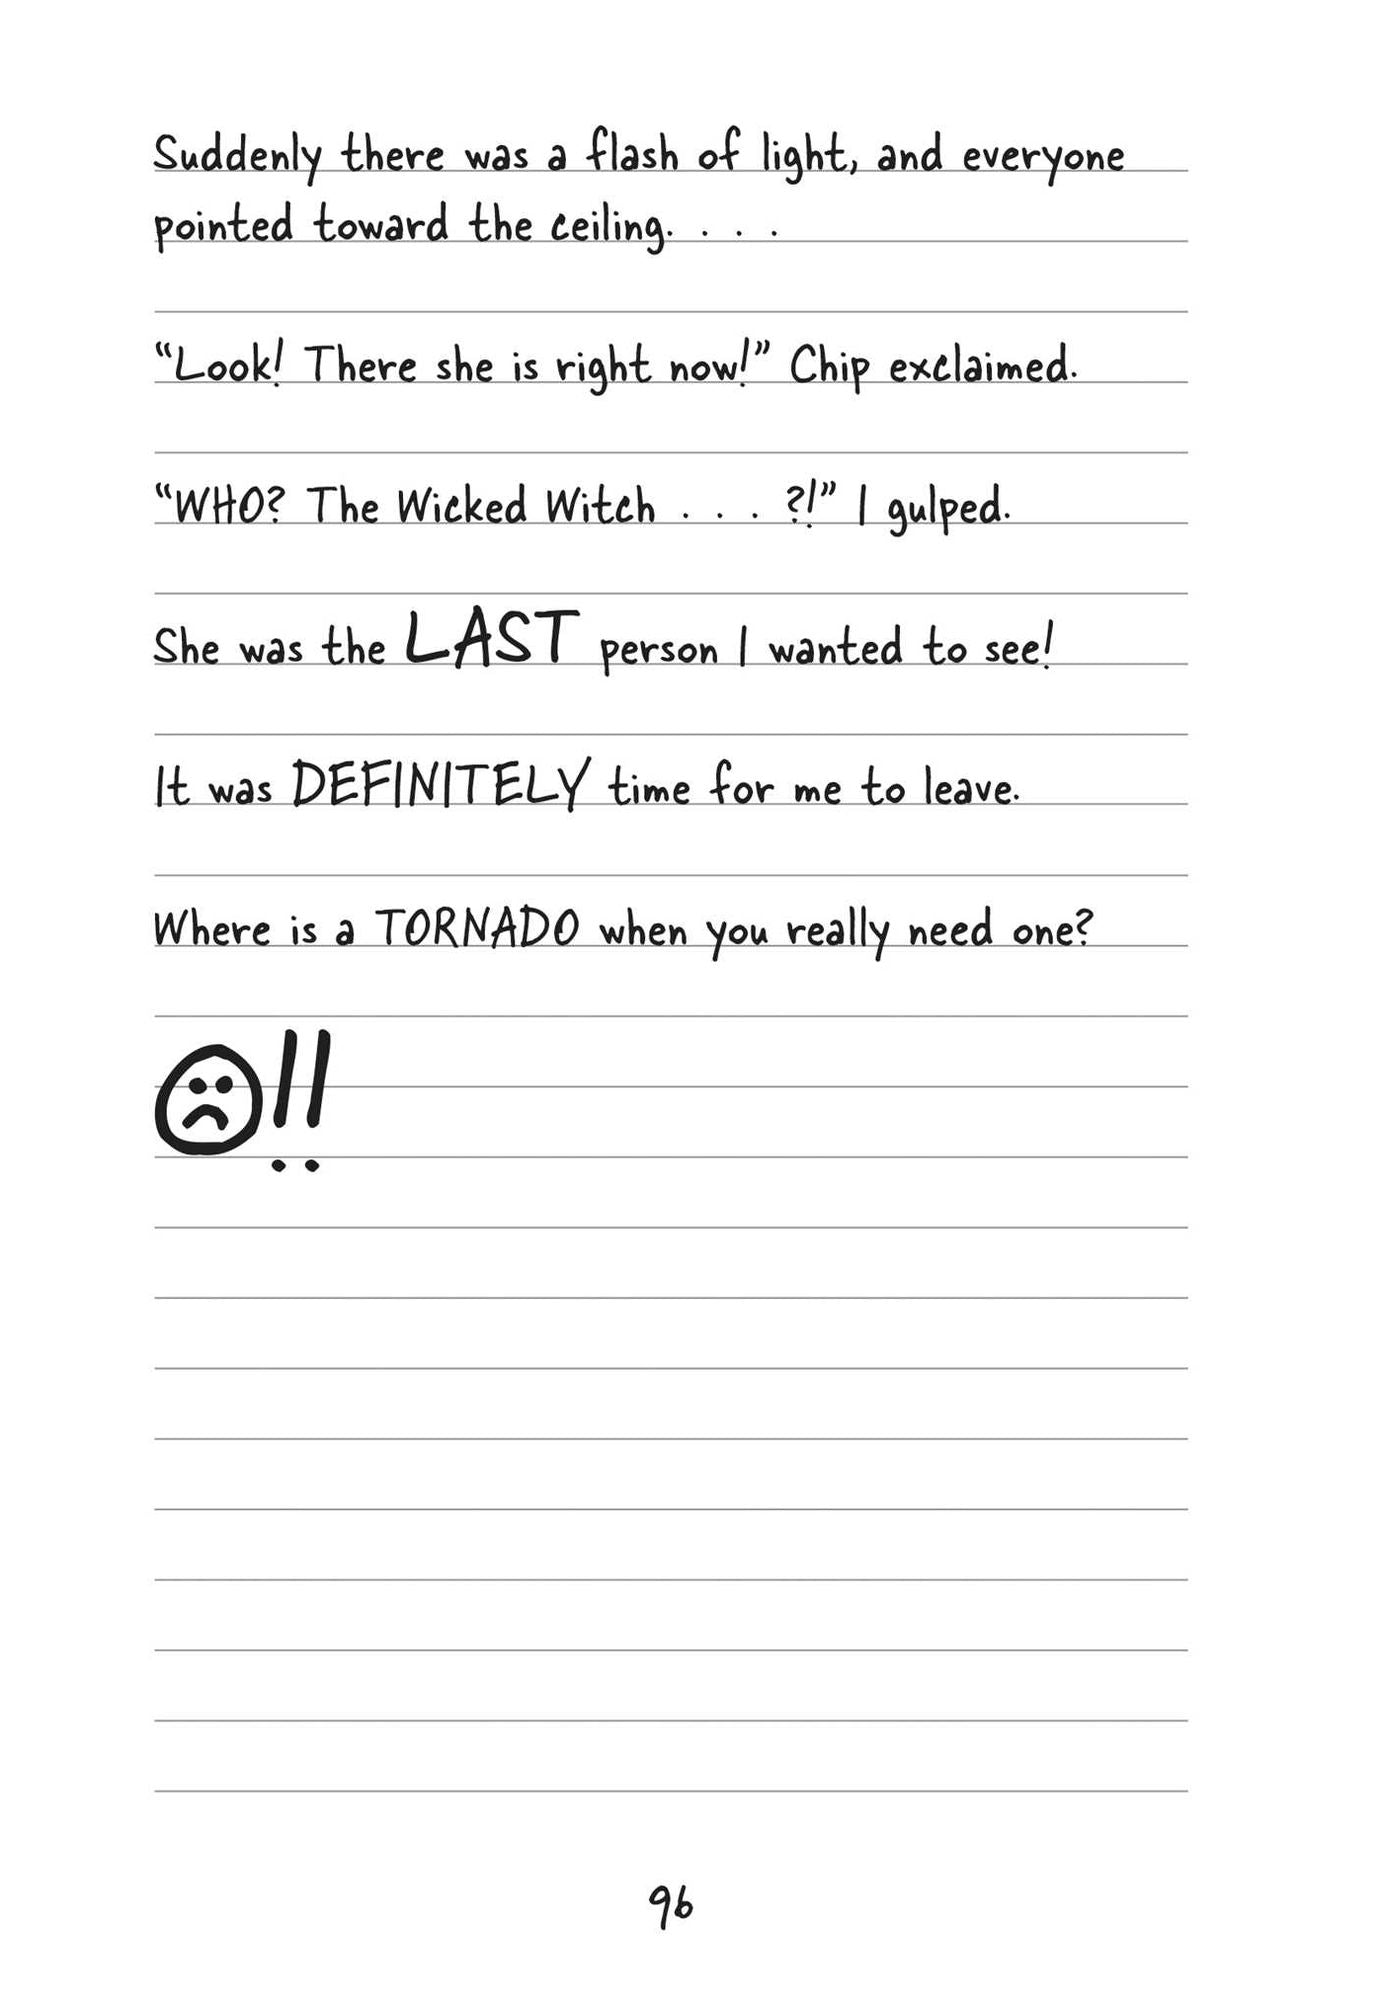 Suddenly there was a flash of light, and everyone
pointed toward the ceiling. . . .
“Look! There she is right now!” Chip exclaimed.
“WHO? The Wicked Witch . . . ?!” I gulped.
She was the LAST person I wanted to see!
It was DEFINITELY time for me to leave.
Where is a TORNADO when you really need one?
☹!!
96